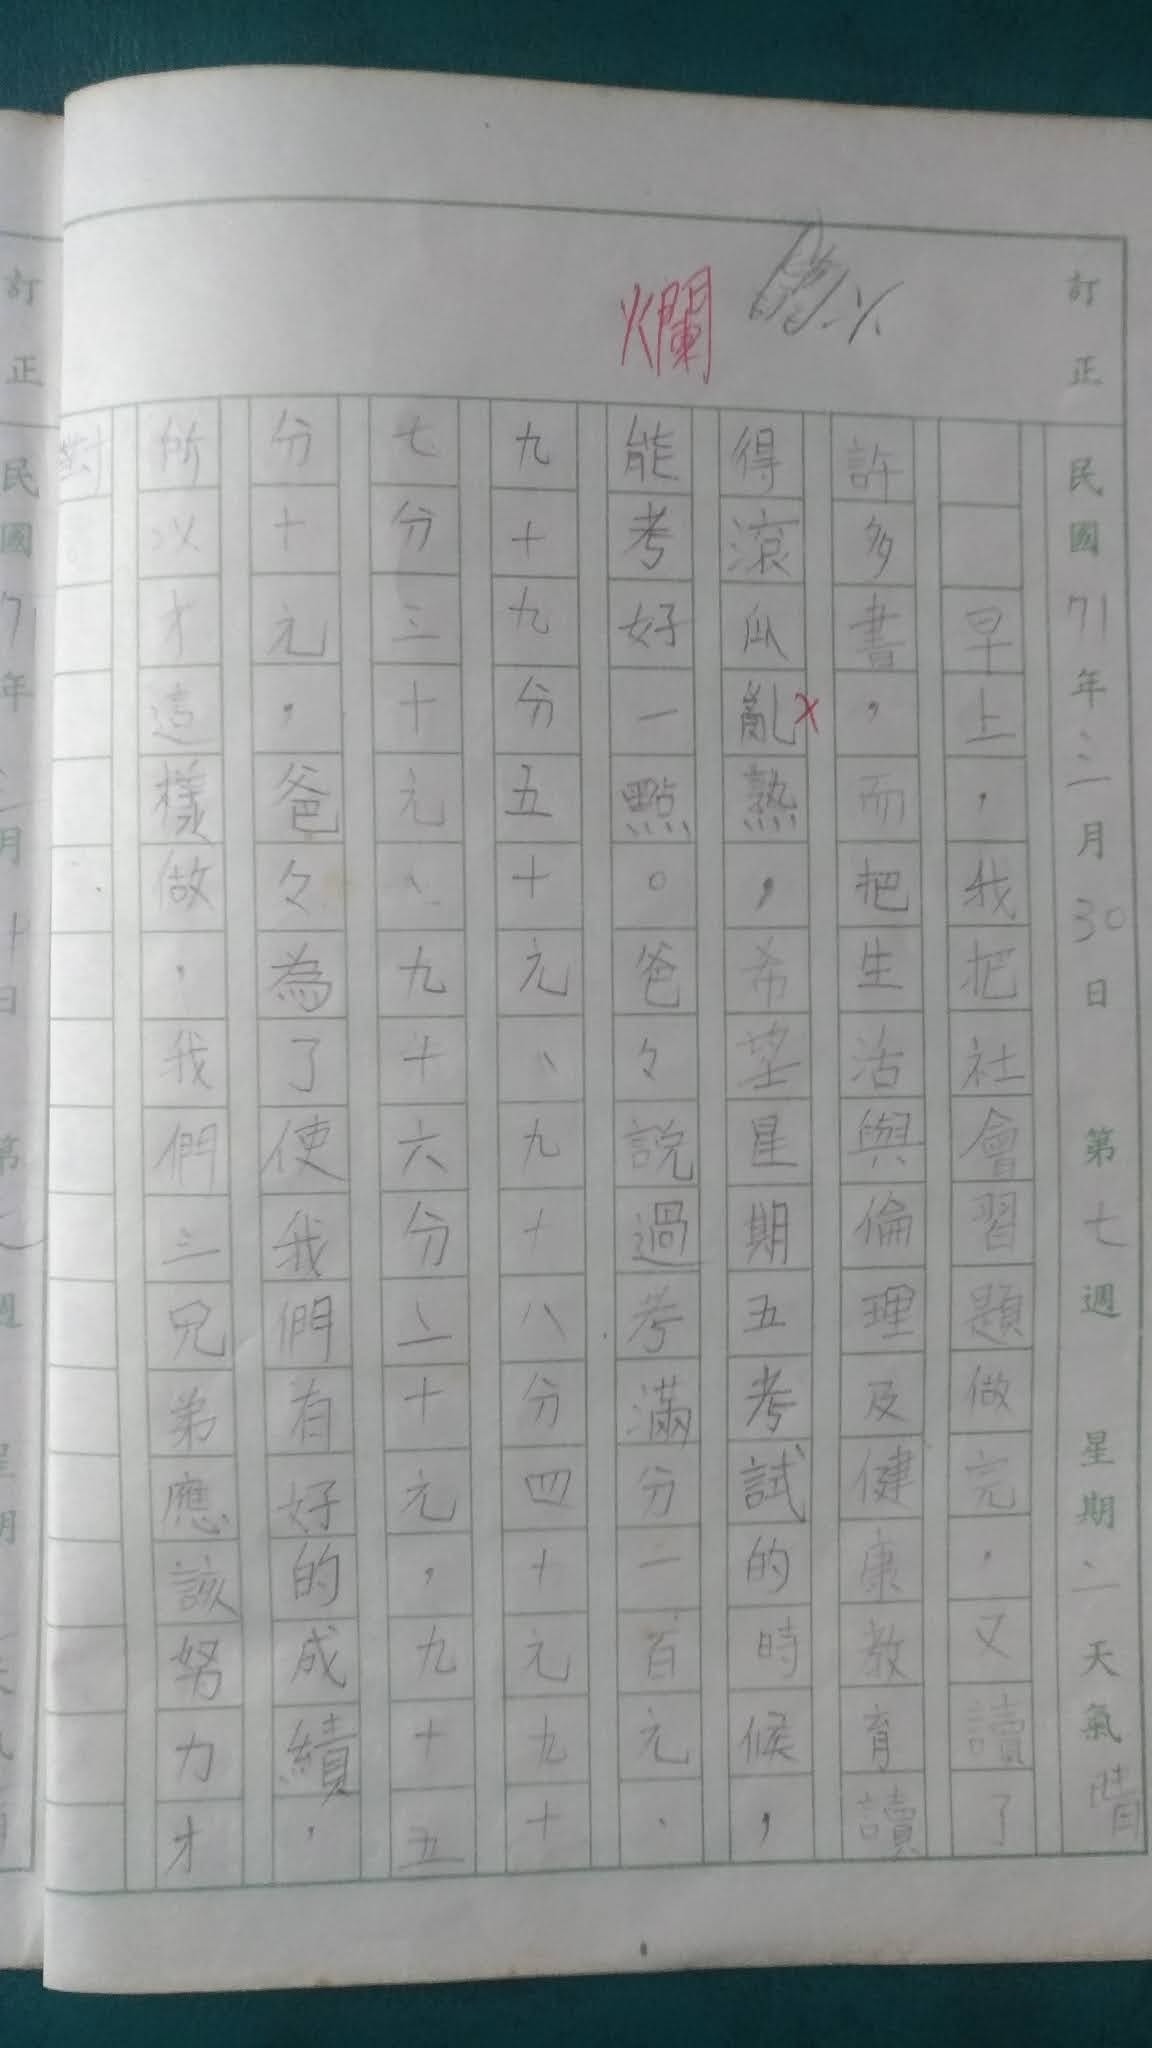 訂正
民國71年三月30日 第七週 星期二 天氣晴
早上，我把社會習題做完，又讀了
許多書，而把生活與倫理及健康教育讀
得滾瓜亂熟，希望星期五考試的時候，
能考好一點。爸々說過考滿分一百元、
九十九分五十元、九十八分四十元九十
七分三十元、九十六分二十元，九十五
分十元，爸々為了使我們有好的成績，
所以才這樣做，我們三兄弟應該努力才
對。
爛
訂正